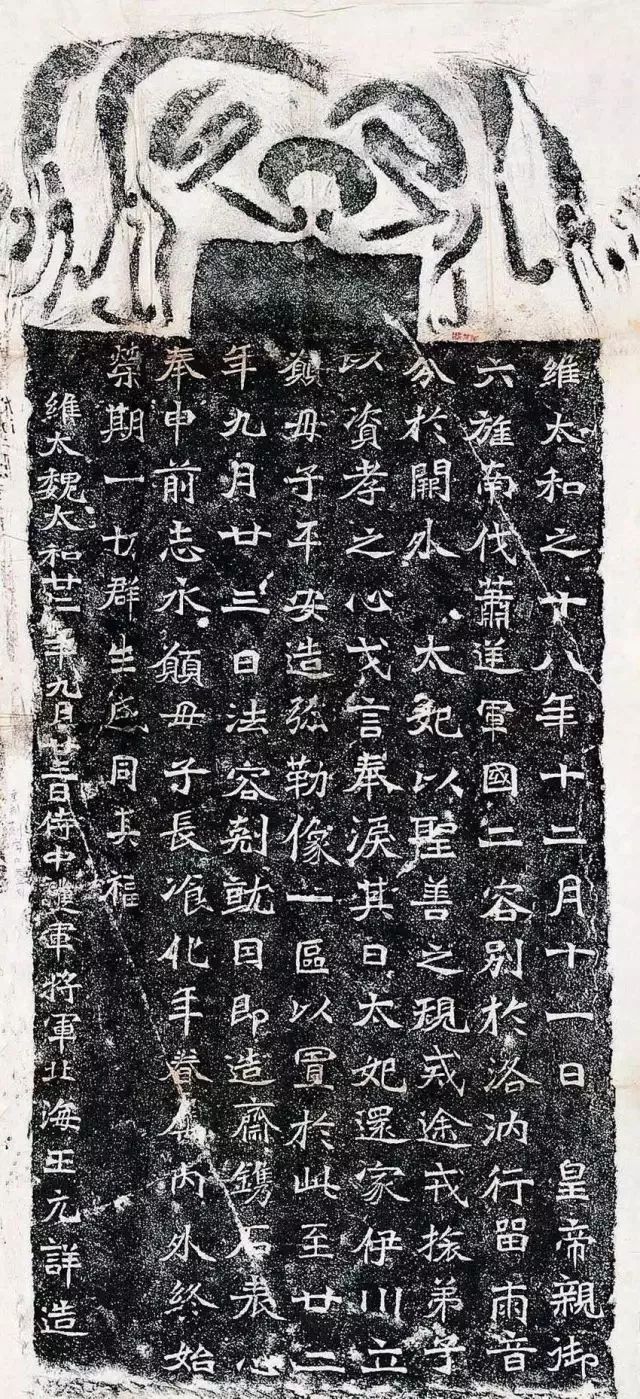 維太和之十八年十二月十一日　皇帝親御
六旌南伐蕭逆軍國二容別於洛汭行留兩音
分於闕外　太妃以聖善之規戒途戎旅弟子
以資孝之心戈言奉淚其日太妃還家伊川立
願母子平安造弥勒像一區以置於此至廿二
年九月廿三日法容剋就因即造齋鐫石表心
奉申前志永願母子長飡化年眷屬內外終始
榮期一切群生咸同其福
維大魏太和廿二年九月廿三日侍中護軍將軍北海王元詳造